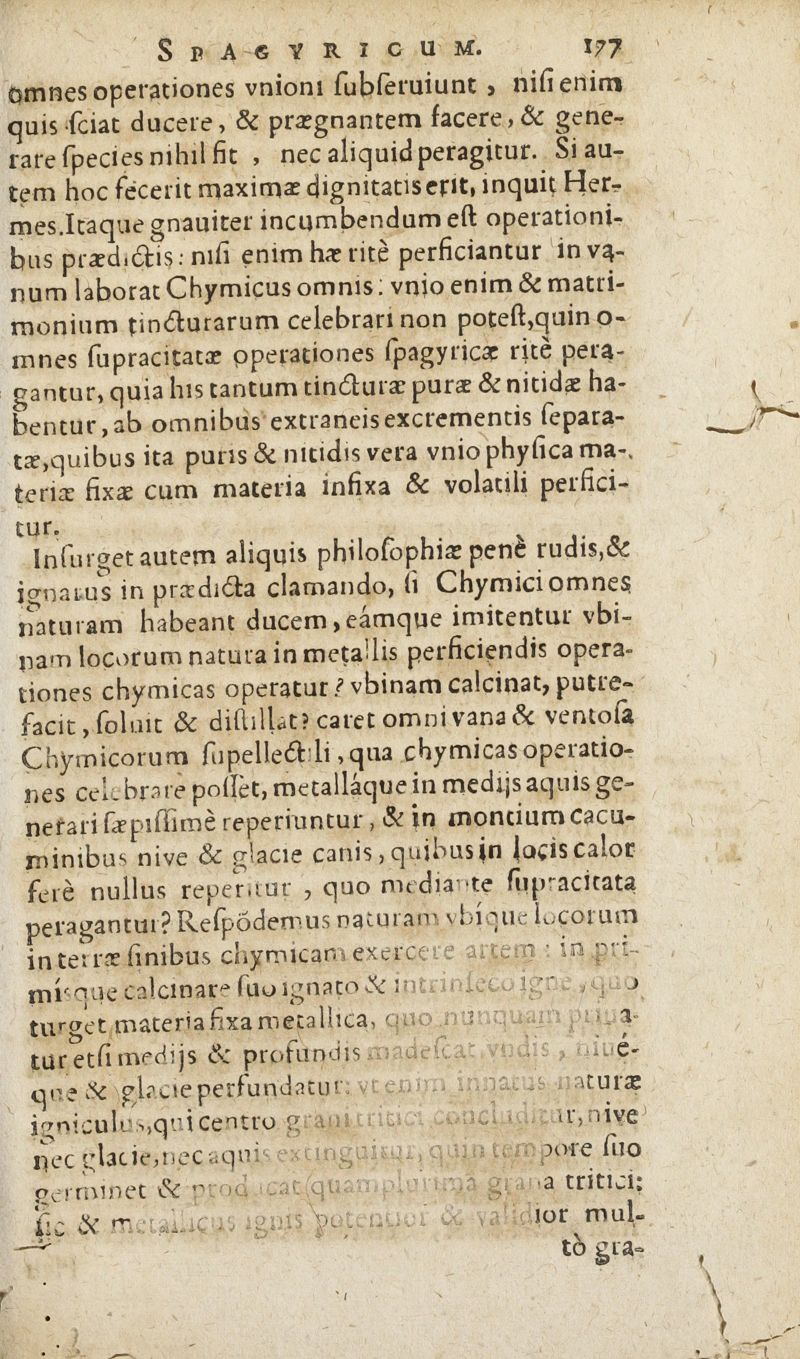 SPAGYRICUM. 177
omnes operationes vnioni ſubſeruiunt , niſi enim
quis ſciat ducere, & prægnantem facere, & gene-
rare ſpecies nihil fit , nec aliquid peragitur. Si au-
tem hoc fecerit maximæ dignitatis erit, inquit Her-
mes.Itaque gnauiter incumbendum eſt operationi-
bus prædictis: niſi enim hæ ritè perficiantur in va-
num laborat Chymicus omnis: vnio enim & matri-
monium tincturarum celebrari non poteſt,quin o-
mnes ſupracitatæ operationes ſpagyricæ ritè pera-
gantur, quia his tantum tincturæ puræ & nitidæ ha-
bentur, ab omnibus extraneis excrementis ſepara-
tæ,quibus ita puris & nitidis vera vnio phyſica ma-
teriæ fixæ cum materia infixa & volatili perfici-
tur.
Inſurget autem aliquis philoſophiæ penè rudis,&
ignarus in prædicta clamando, ſi Chymici omnes
naturam habeant ducem, eámque imitentur vbi-
nam locorum natura in metallis perficiendis opera-
tiones chymicas operatur? vbinam calcinat, putre-
facit, ſoluit & diſtillat? caret omni vana & ventoſa
Chymicorum ſupellectili, qua chymicas operatio-
nes celebrare poſſet, metalláque in medijs aquis ge-
nerari ſæpiſſimè reperiuntur, & in montium cacu-
minibus nive & glacie canis, quibus in locis calor
ferè nullus reperitur , quo mediante ſupracitata
peragantur? Reſpōdemus naturam vbique locorum
in terræ finibus chymicam exercere artem : in pri-
miſque calcinare ſuo ignato & intrinſeco igne , quo
turget materia fixa metallica, quo nunquam priua-
tur etſi medijs & profundis madeſcat vndis , niue-
que & glacie perfundatur: vt enim innatus naturæ
igniculus,qui centro grani tritici concluditur, nive
nec glacie,nec aquis extinguitur, quin tempore ſuo
germinet & producat quamplurima grana tritici;
ſic & metallicus ignis potentior & validior mul-
tò gra-